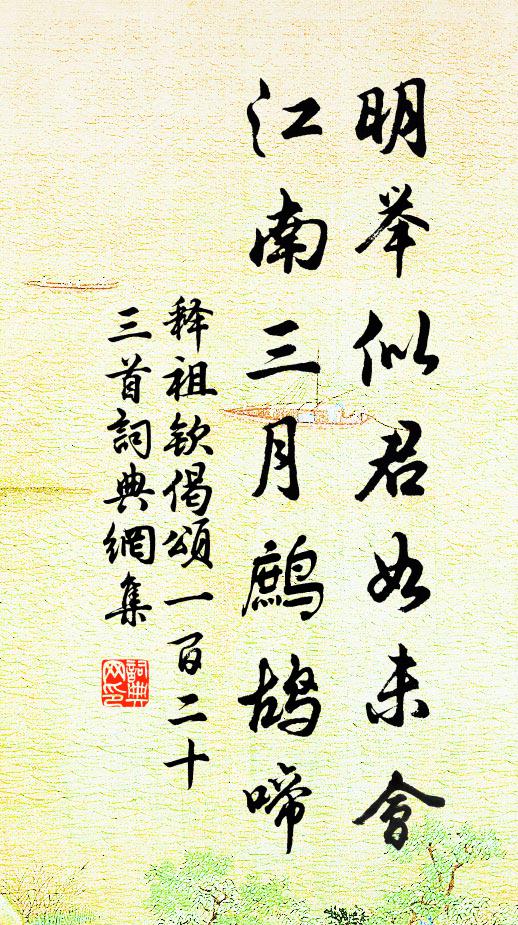 明举似君如未會
江南三月鹧鸪啼
释祖钦偈頌一百二十
三首詞典網集
詞典网印